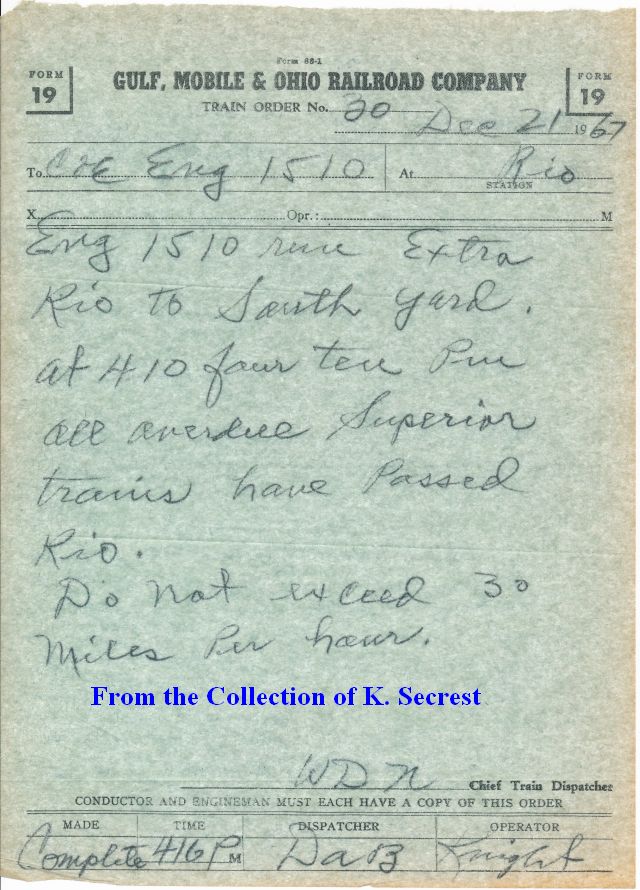 Form 88-1
FORM 19
GULF, MOBILE & OHIO RAILROAD COMPANY
FORM 19
TRAIN ORDER No. 30
Dec 21 1967
To C&E Eng 1510 At Rio
STATION
X Opr.: M
Eng 1510 run Extra
Rio to South yard.
at 410 four ten Pm
all overdue Superior
trains have Passed
Rio.
Do not exceed 30
Miles Per hour.
From the Collection of K. Secrest
WDN Chief Train Dispatcher
CONDUCTOR AND ENGINEMAN MUST EACH HAVE A COPY OF THIS ORDER
MADE TIME DISPATCHER OPERATOR
Complete 416 P M DaB Knight